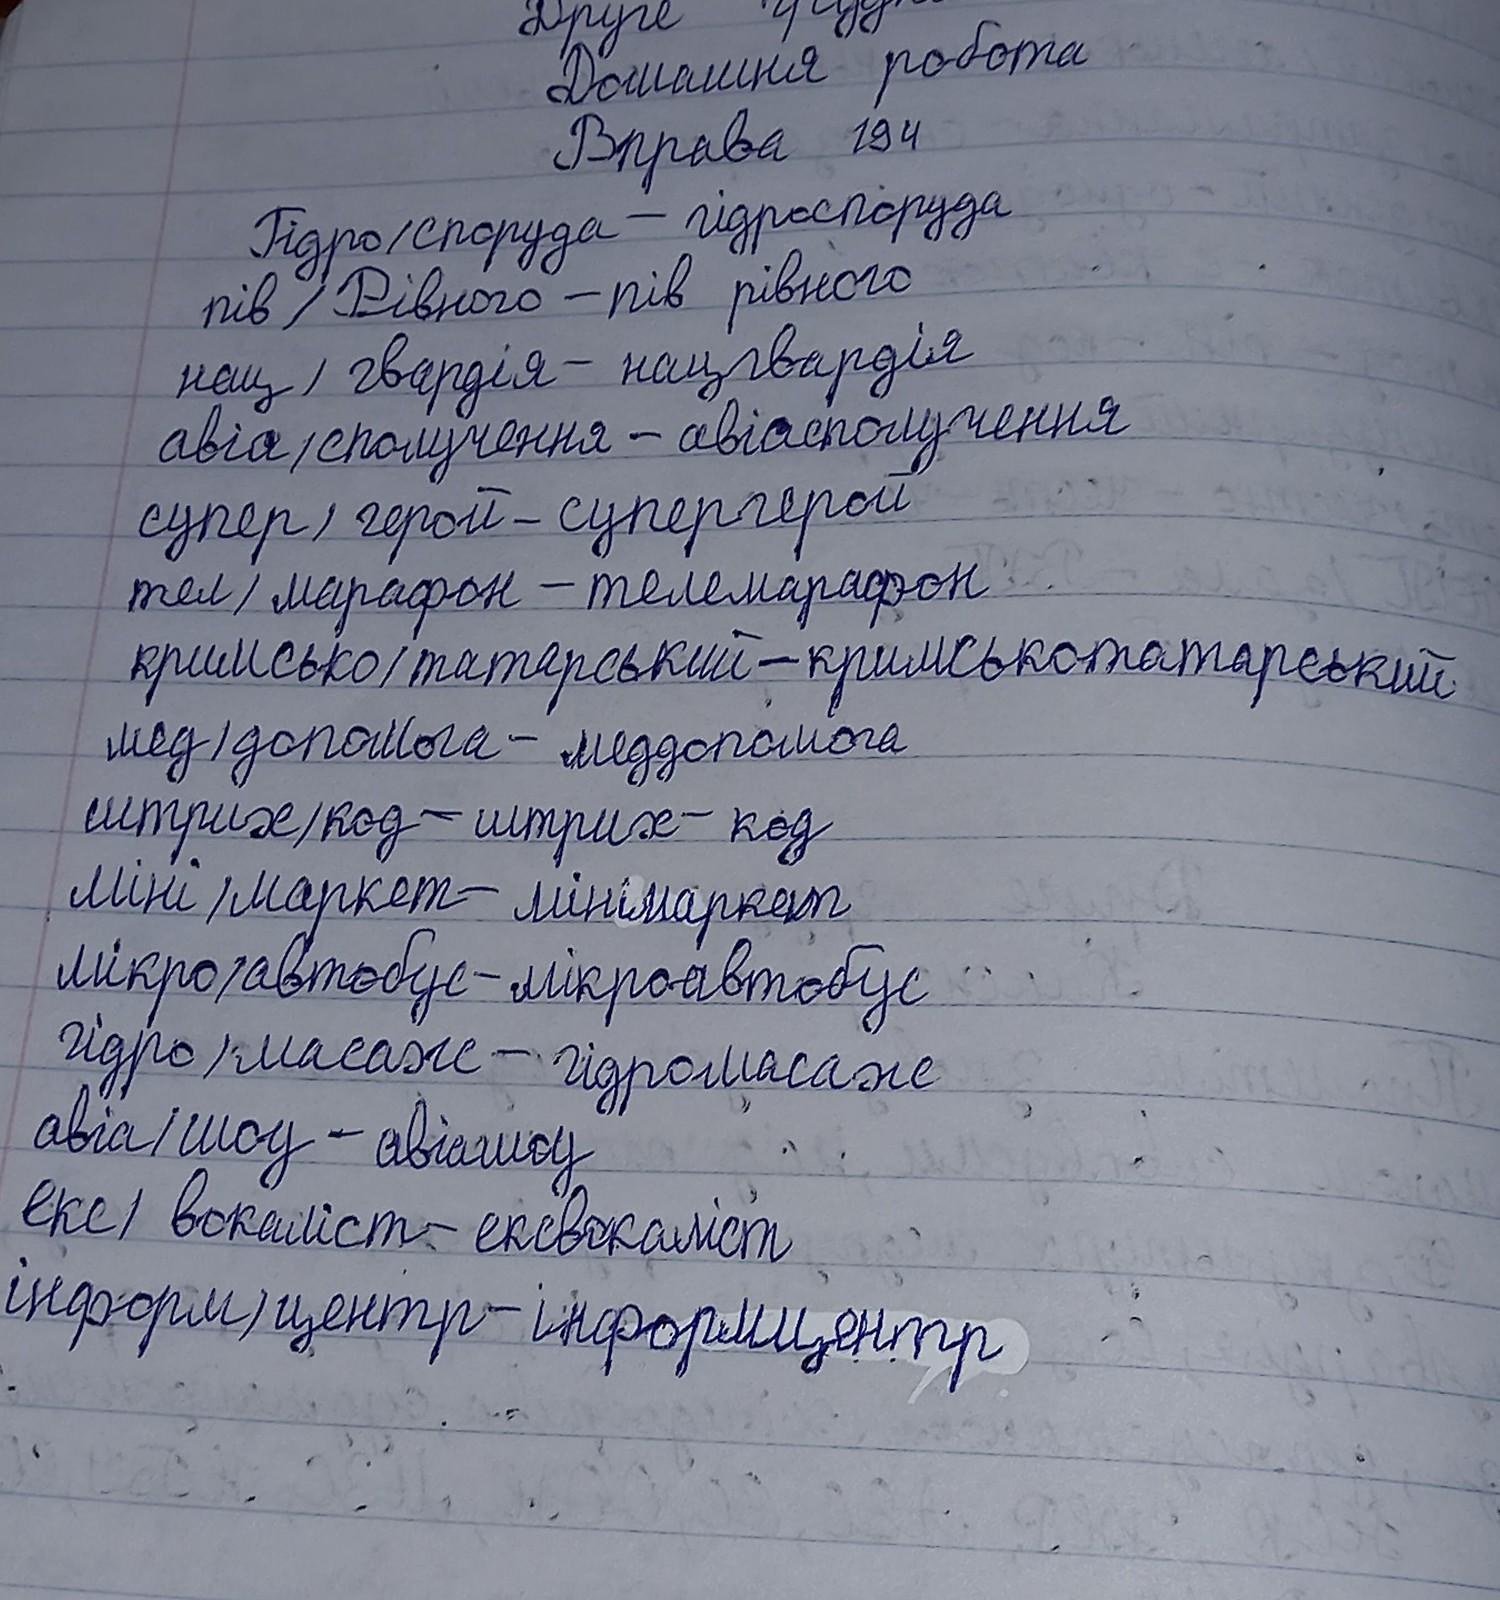 Друге
Домашня робота
Вправа 194
Гідро/споруда – гідроспоруда
пів/Рівного – пів рівного
нац/гвардія – нацгвардія
авіа/сполучення – авіасполучення
супер/герой – супергерой
тел/марафон – телемарафон
кримсько/татарський – кримськотатарський
мед/допомога – меддопомога
штрих/код – штрих-код
міні/маркет – мінімаркет
мікро/автобус – мікроавтобус
гідро/масаж – гідромасаж
авіа/шоу – авіашоу
екс/вокаліст – ексвокаліст
інформ/центр – інформцентр